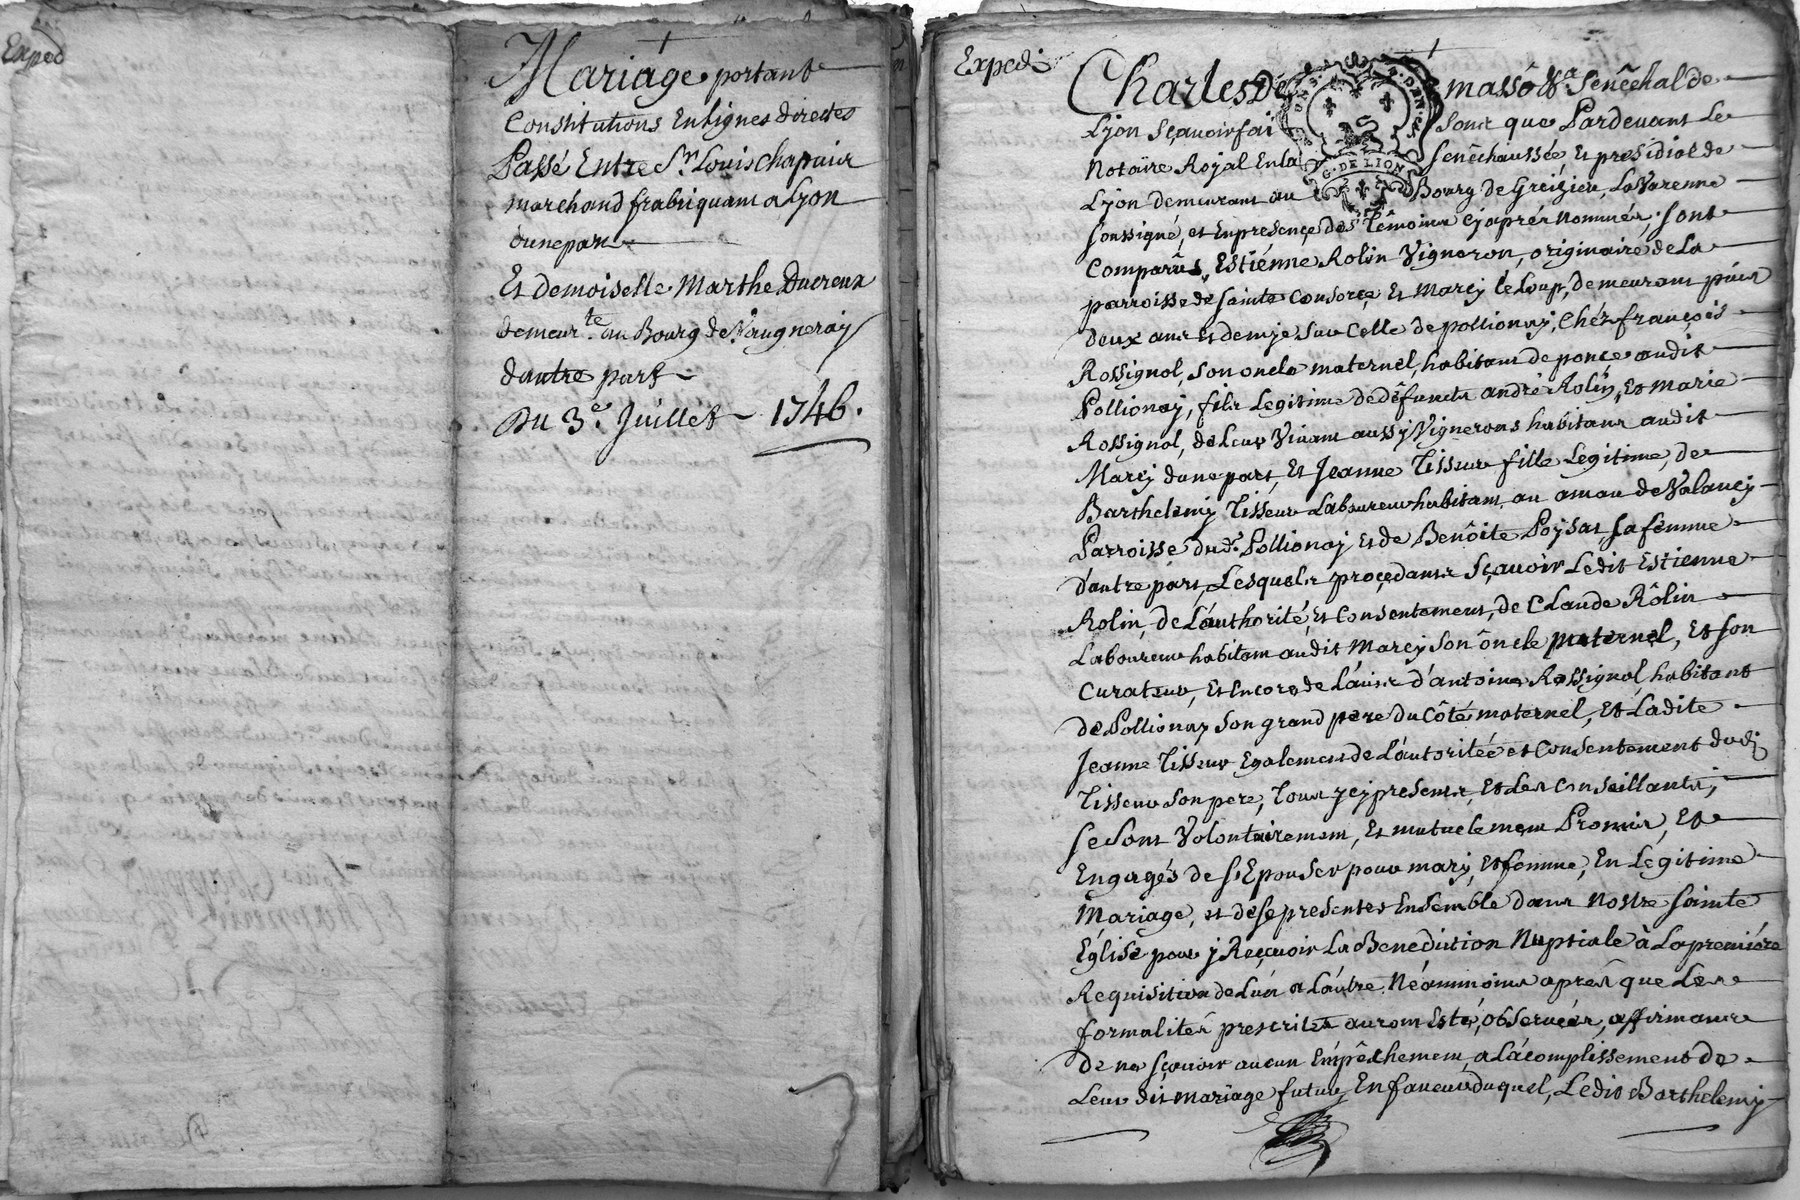 Exped
Mariage portant
Constitutions En Lignes directes
Passé Entre Sr. Louis Chapuis
marchand frabriquant a Lyon
dunepart
Et demoiselle Marthe Ducreux
demeurte. au Bourg de Vaugneray
dautre part
Du 3e. Juillet 1746.
Exped.
Charles De massô &a Senêchal de
Lyon Sçauoir fai sons que Pardeuant Le
Notaire Royal En la Senêchaussée et presidial de
G. DE LION
Lyon demeurant au Bourg de Greizieu LaVarenne
soussigné, et En presençe des Têmoins cy aprés Nommés, sont
Comparûs, Estiénne Rolin Vigneron, originaire de La
parroisse de sainte Consorçe Et Marcy le Loup, demeurant puis
deux ans et demye sur Celle de pollionay, Chéz françois
Rossignol, son oncle maternel, habitant de ponçe audit
Pollionay, fils Legitime de défuncts andré Rolin, Et Marie
Rossignol, de Leur Viuant aussy Vignerons habitans audit
Marcy dune part, Et Jeanne Tisseur fille Legitime, de
Barthelemy Tisseur Laboureur habitant au amau de Valancy
Parroisse dudt. Pollionay et de Benôite Poysat, sa femme
d'autre part, Lesquels proçedants Sçauoir Ledit Estienne
Rolin, de L'authorité, et Consentement, de Claude Rôlin
Laboureur habitant audit Marcy son ôncle maternel, Et son
Curateur, Et Encore de L'auis d'antoine Rossignol habitant
de Pollionay son grand pere du Côté maternel, Et Ladite
Jeanne Tisseur Egalement de L'autoritée et Consentement dudi
Tisseur son pere, Tous ycy presents, Et Les Conseillants,
se sont Volontairement, Et mutuelement Promis, Et
Engagés de s'Epouser pour mary, et femme, En Legitime
Mariage, et de se presenter Ensemble dans Nostre sainte
Église pour y Reçeuoir La Benediction Nuptiale à La premiére
Requisition de L'un a L'autre Néammoins aprés que Les
formalités prescrites auront Esté, obseruées, affirmants
de ne sçauoir aucun Empêchement, a L'acomplissement de
Leur dit mariage futur, En faueur duquel, Ledit Barthelemy